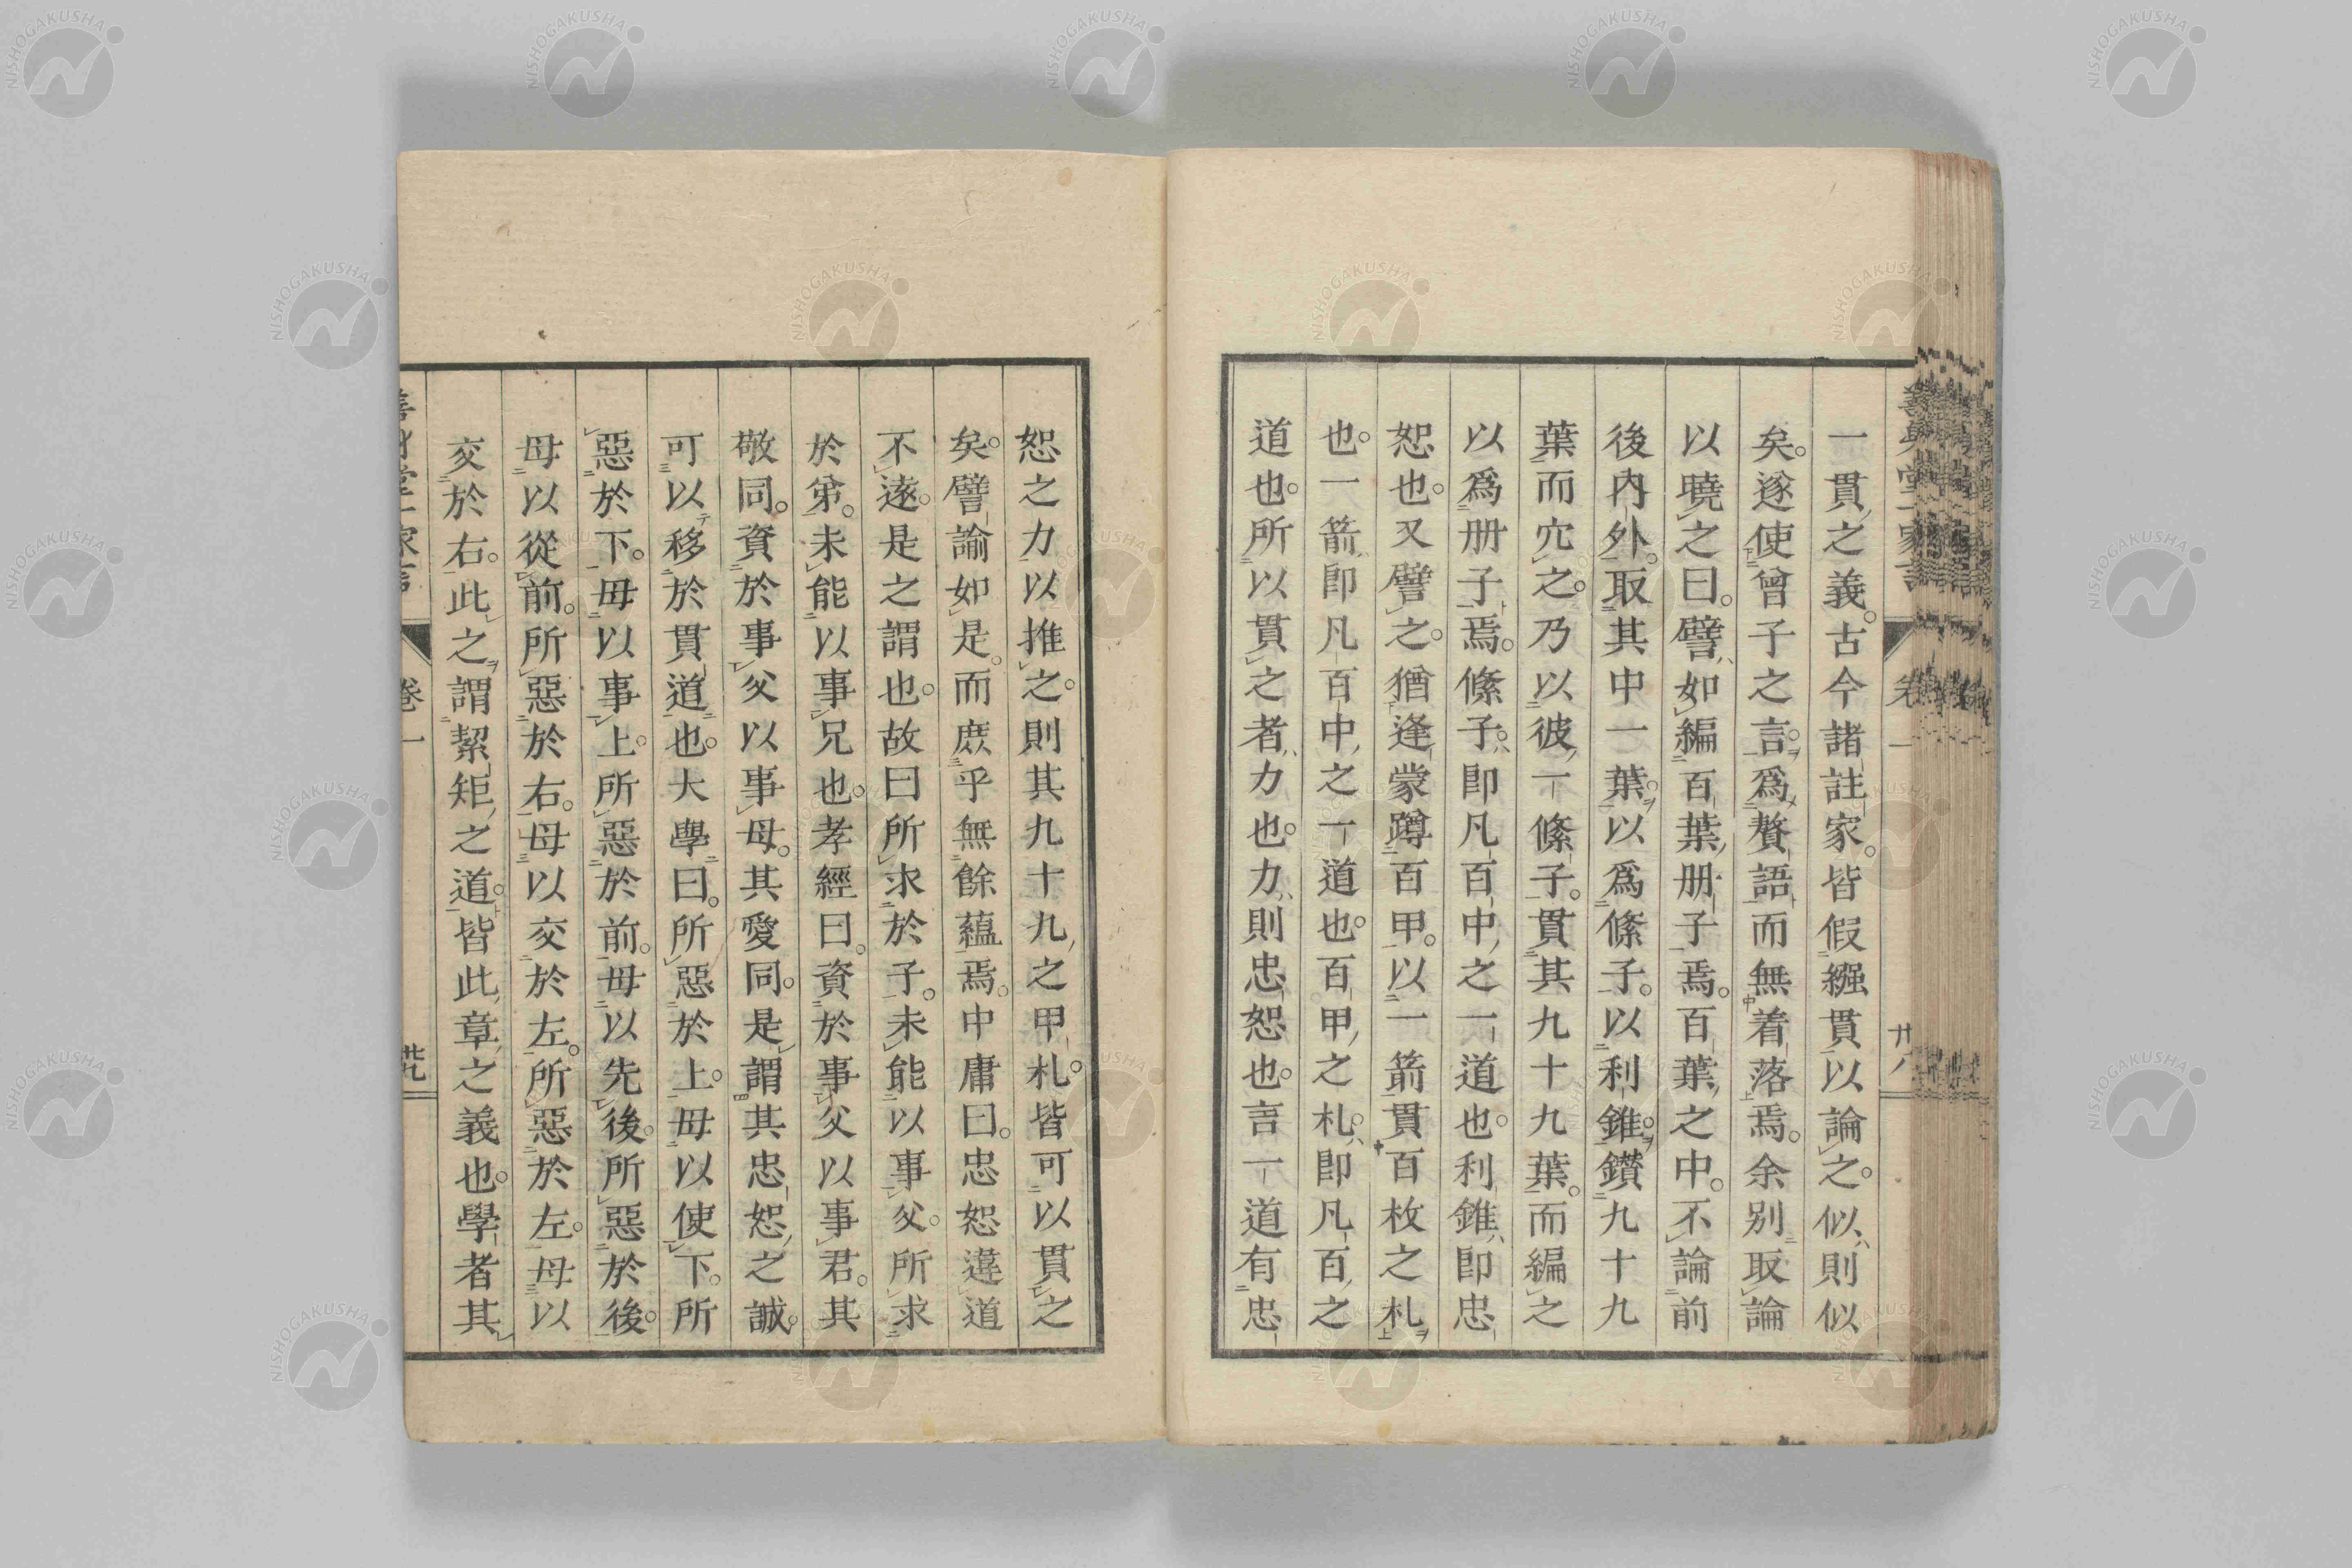 一貫之義。古今諸註家。皆假繦貫以論之。似則似
矣。遂使曾子之言。爲贅語而無着落焉。余別取論
以曉之曰。譬如編百葉册子焉。百葉之中。不論前
後內外。取其中一葉。以爲絛子。以利錐。鑽九十九
葉而穴之。乃以彼一絛子。貫其九十九葉。而編之
以爲册子焉。絛子。卽凡百中之一道也。利錐卽忠
恕也。又譬之。猶逢蒙蹲百甲。以一箭貫百枚之札
也。一箭卽凡百中之一道也。百甲之札。卽凡百之
道也。所以貫之者力也。力則忠恕也。言一道有忠
恕之力以推之。則其九十九之甲札。皆可以貫之
矣。譬論如是。而庶乎無餘蘊焉。中庸曰。忠恕違道
不遠。是之謂也。故曰所求於子。未能以事父。所求
於弟。未能以事兄也。孝經曰。資於事父以事君。其
敬同。資於事父以事母。其愛同。是謂其忠恕之誠。
可以移於貫道也。大學曰。所惡於上。毋以使下。所
惡於下。毋以事上。所惡於前。毋以先後。所惡於後。
毋以從前。所惡於右。毋以交於左。所惡於左。毋以
交於右。此之謂絜矩之道。皆此章之義也。學者其
卷一
廿九
NISHOGAKUSHA